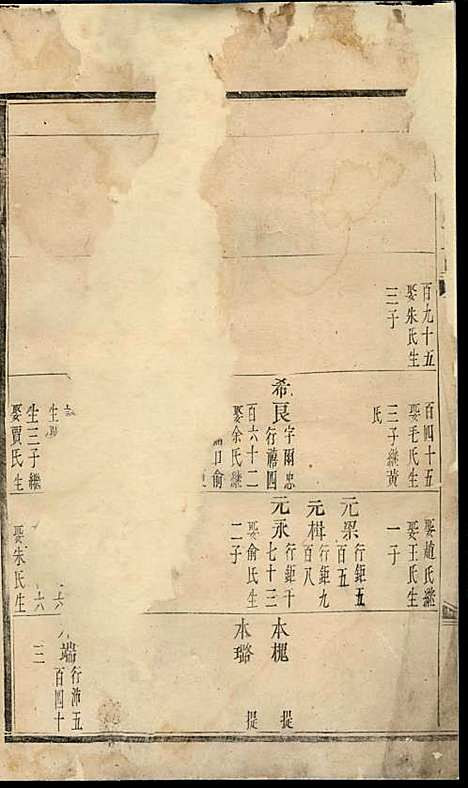 百九十五
娶朱氏生
三子
百四十五
娶毛氏生
三子繼黄
氏
希良字爾忠
行禧四
百六十二
娶余氏繼
俞
生
生三子繼
娶賈氏生
娶趙氏繼
娶王氏生
一子
元杲行鉅五
百五
元楫行鉅九
百八
元永行鉅千
七十三
娶俞氏生
二子
六
六
娶朱氏生
本榥 提
本璐 提
端行沛五
百四十
三